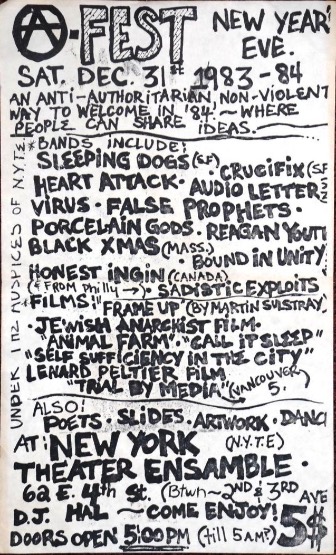 A-FEST NEW YEAR
EVE.
SAT. DEC. 31st 1983-84
AN ANTI-AUTHORITARIAN, NON-VIOLENT
WAY TO WELCOME IN '84. ~ WHERE
PEOPLE CAN SHARE IDEAS.
UNDER THE AUSPICES OF N.Y.T.E
*BANDS INCLUDE:
SLEEPING DOGS (SF)
CRUCIFIX (SF
HEART ATTACK. AUDIO LETTER
VIRUS. FALSE PROPHETS.
PORCELAIN GODS. REAGAN YOUT
BLACK XMAS (MASS.)
. BOUND IN UNITY
HONEST INGIN (CANADA)
(& FROM Philly →) SADISTIC EXPLOITS
*FILMS: "FRAME UP" (BY MARTIN SULSTRAY.
. JEWISH ANARCHIST FILM.
"ANIMAL FARM". "CALL IT SLEEP"
"SELF SUFFICIENCY IN THE CITY"
LENARD PELTIER FILM
"TRIAL BY MEDIA" (VANCOUVER
5.)
ALSO:
POETS. SLIDES. ARTWORK. DANC
AT: NEW YORK (N.Y.T.E)
THEATER ENSAMBLE.
62 E. 4th St. (Btwn ~ 2ND & 3RD AVE
D.J. HAL ~ COME ENJOY! 5$
DOORS OPEN 5:00PM (till 5 AM?)